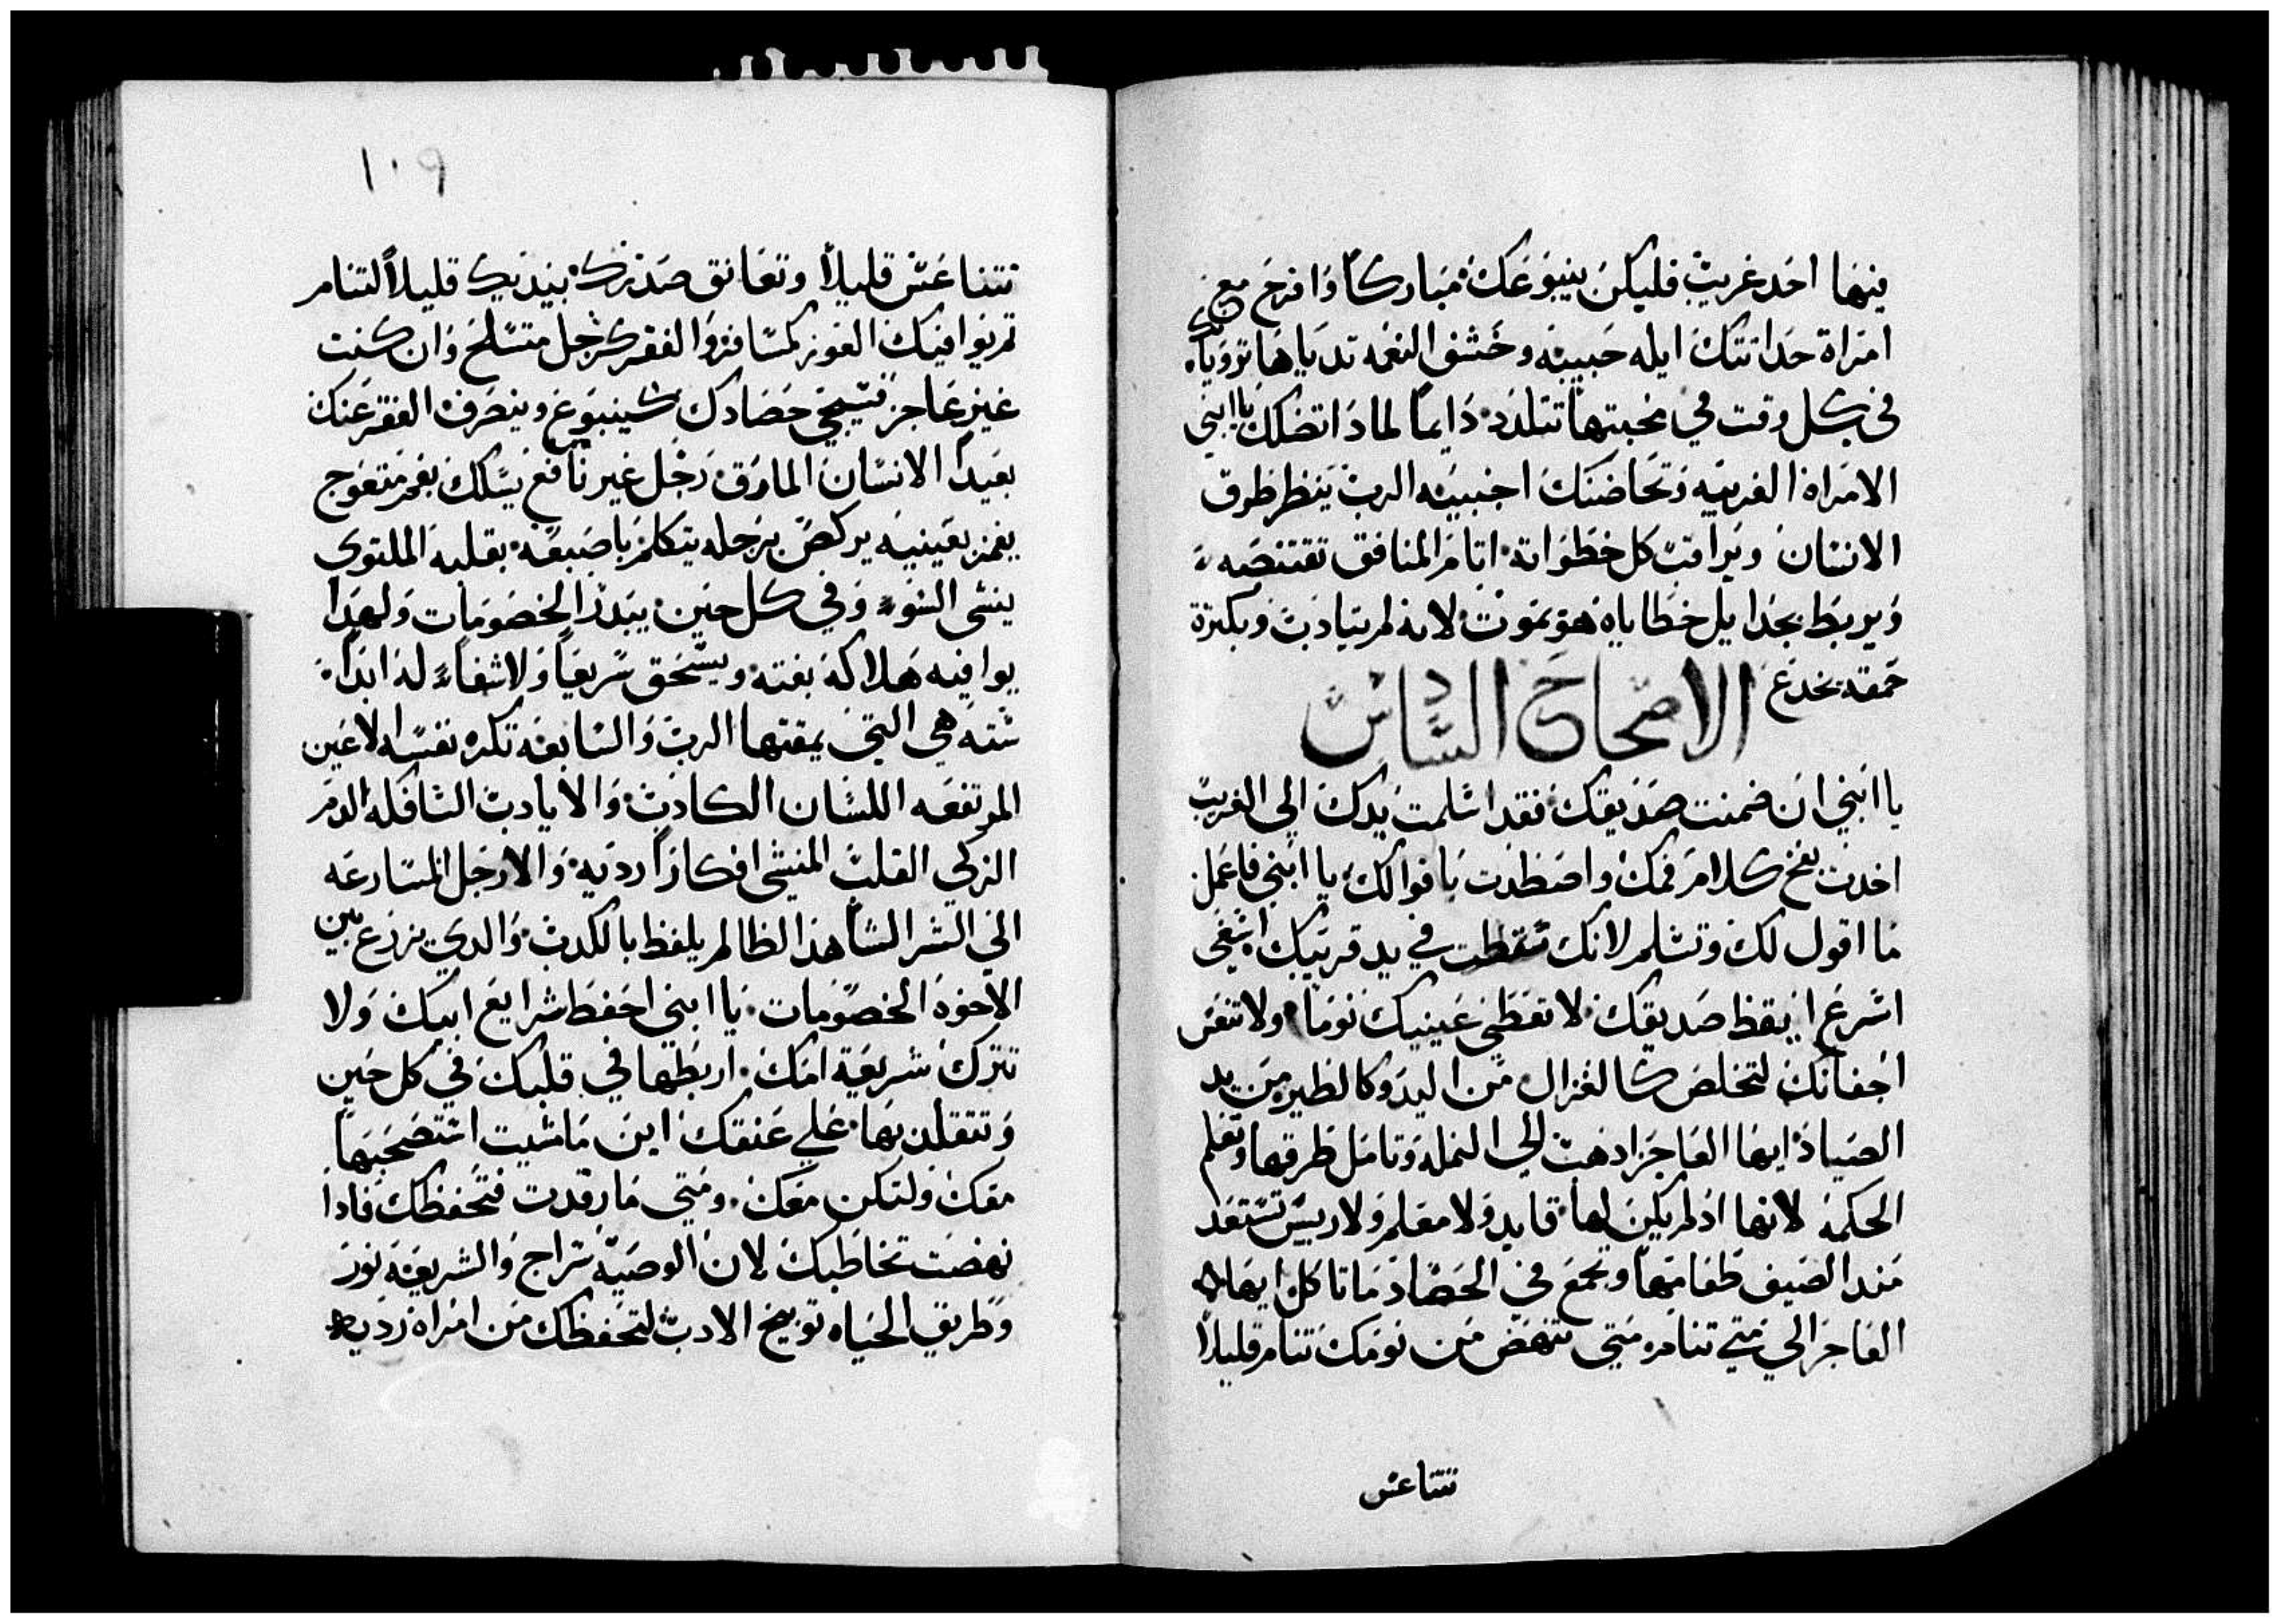 فيها احد غريب فليكن ينبوعك مباركا وافرح مع
امراة حداتتك ايله حبيبه وخشف النعمه تدياها ترويانك
في كل وقت في محبتها تتلدد دايما لمادا تضلك يا ابني
الامراة الغريبه وتحاضنك اجنبيه الرب ينظر طرق
الانسان ويراقب كل خطواته اتام المنافق تقتنصه
ويربط بحدايل خطاياه هو يموت لانه لم يتادب وبكترة
حمقه يخدع
الاصحاح السادس
يا ابني ان ضمنت صديقك فقد اسلمت يدك الي الغريب
اخدت بفخ كلام فمك واصطدت باقوالك يا ابني فاعمل
ما اقول لك وتسلم لانك سقطت في يد قريبك اسعي
اسرع ايقظ صديقك لا تغطي عينيك نوما ولا تنعس
اجفانك لتخلص كالغزال من اليد وكالطير من يد
الصياد ايها العاجز ادهب الي النمله وتامل طرقها وتعلم
الحكمه لانها اد لم يكن لها قايد ولا معلم ولا رييس تستعد
مند الصيف طعامها وتجمع في الحصاد ما تاكل ايها
العاجز الي متي تنام ومتي تنهض من نومك تنام قليلا
تتناعس
١٠٩
تتناعس قليلا وتعانق صدرك بيديك قليلا لتنام
ثم يوافيك العوز كمسافر والفقر كرجل متسلح وان كنت
غير عاجز فسيجي حصادك كينبوع وينصرف الفقر عنك
بعيدا الانسان المارق رجل غير نافع يسلك بفم متعوج
يغمز بعينيه يركض برجله يتكلم باصبعه بقلبه الملتوي
ينشي السوء وفي كل حين يبدر الخصومات ولهدا
يوافيه هلاكه بغته ويسحق سريعا ولا شفاء له ابدا
سته هي التي يمقتها الرب والسابعه تكره نفسه الاعين
المرتفعه اللسان الكادب والايادب السافكه الدم
الزكي القلب المنشي افكارا رديه والارجل المسارعه
الي الشر الساهد الظالم يلفظ بالكدب والدي يزرع بين
الاخوه الخصومات يا ابني احفظ شرايع ابيك ولا
تترك شريعة امك اربطها في قلبك في كل حين
وتتقلد بها علي عنقك اين ما مشيت استصحبها
معك ولتكن معك ومتي ما رقدت فتحفظك فادا
نهضت تخاطبك لان الوصيه سراج والشريعه نور
وطريق الحياه توبيخ الادب لتحفظك من امراة رديه